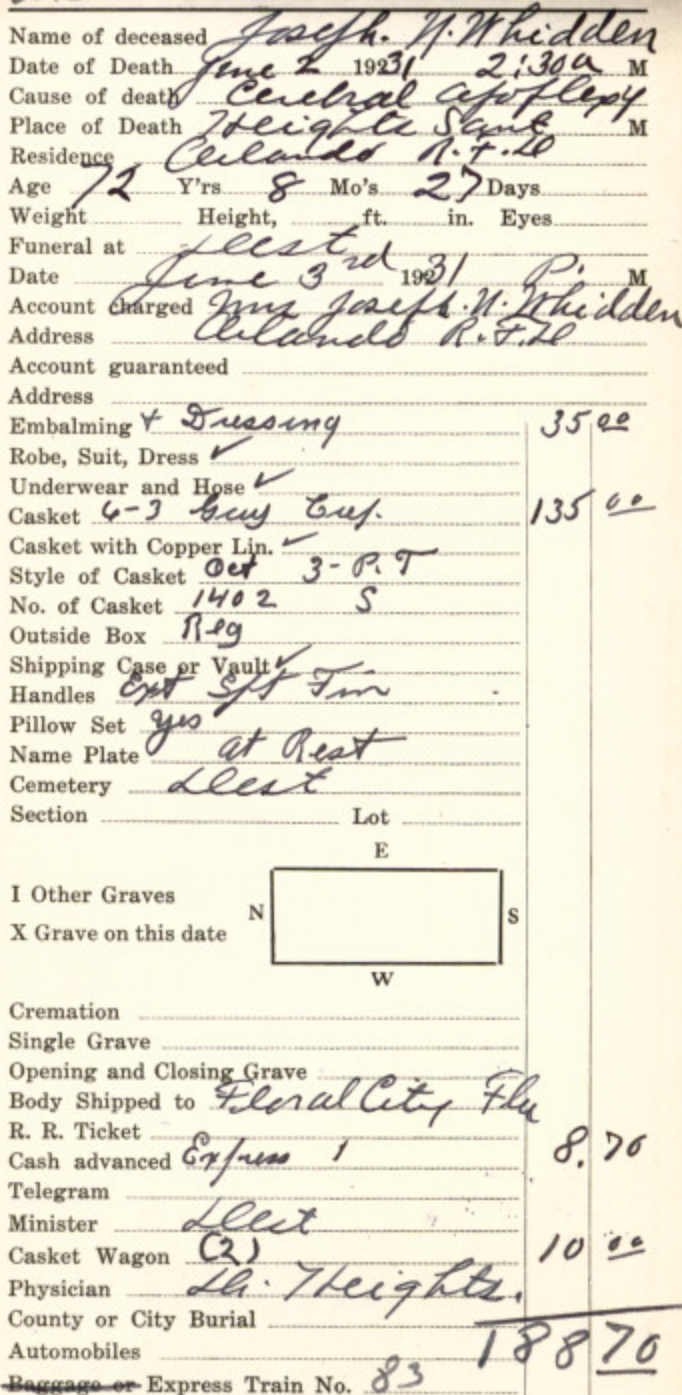 Name of deceased Joseph. N. Whidden
Date of Death June 2 19231 2:30a M
Cause of death Cerebral apoplexy
Place of Death Heights Sant M
Residence Orlando R.F.D
Age 72 Y'rs 8 Mo's 27 Days
Weight Height, ft. in. Eyes
Funeral at Dest
Date June 3rd 19231 P. M
Account charged Mrs Joseph. N. Whidden
Address Orlando R.F.D
Account guaranteed
Address
Embalming + Dressing 35 00
Robe, Suit, Dress ✓
Underwear and Hose ✓
Casket 6-3 Grey Crep. 135 00
Casket with Copper Lin. ✓
Style of Casket Oct 3-P.T
No. of Casket 1402 S
Outside Box Reg
Shipping Case or Vault ✓
Handles Ext
Pillow Set yes
Name Plate at Rest
Cemetery Dest
Section Lot
E
I Other Graves
N S
X Grave on this date
W
Cremation
Single Grave
Opening and Closing Grave
Body Shipped to Floral City Fla
R. R. Ticket
Cash advanced Express 1 8.70
Telegram
Minister Dest
Casket Wagon (2) 10 00
Physician Dr. Heights.
County or City Burial
Automobiles 188 70
Baggage or Express Train No. 83